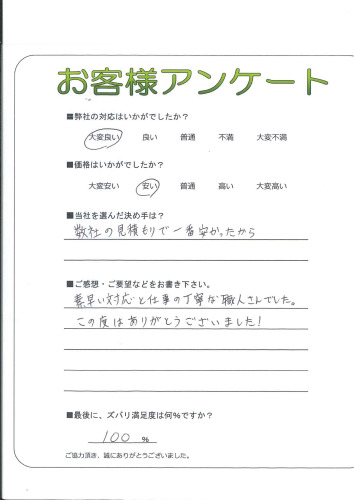 お客様アンケート
■弊社の対応はいかがでしたか？
大変良い 良い 普通 不満 大変不満
■価格はいかがでしたか？
大変安い 安い 普通 高い 大変高い
■当社を選んだ決め手は？
数社の見積もりで一番安かったから
■ご感想・ご要望などをお書き下さい。
素早い対応と仕事の丁寧な職人さんでした。
この度はありがとうございました！
■最後に、ズバリ満足度は何％ですか？
100 ％
ご協力頂き、誠にありがとうございました。